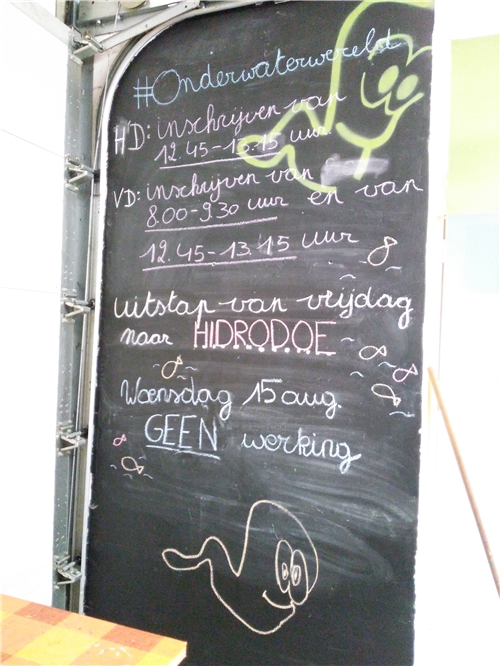 #Onderwaterwereld
HD: inschrijven van
12.45-13.15 uur.
VD: inschrijven van
8.00-9.30 uur en van
12.45-13.15 uur
uitstap van vrijdag
naar HIDRODOE
Woensdag 15 aug.
GEEN werking